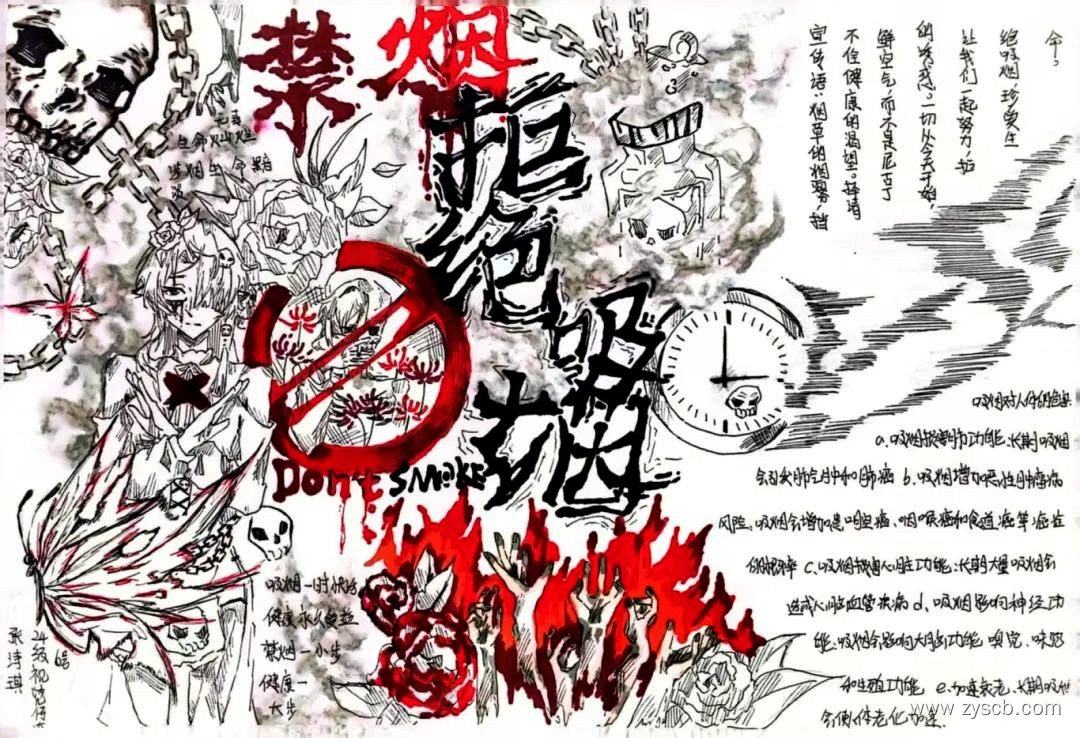 禁烟
拒绝吸烟
Don't SMOKE
无毒
生命灿烂
涉烟生命黯
淡
宣传语:烟草的烟雾,挡
不住健康的渴望。择清
鲜空气,而不是尼古丁
的诱惑。一切从今天开始
让我们一起努力,拒
绝吸烟,珍爱生
命?
a.吸烟损害肺功能,长期吸烟
会引发肺气肿和肺癌 b.吸烟增加恶性肿瘤病
风险,吸烟会增加患口腔癌、咽喉癌和食道癌等癌症
c.吸烟损害心脏功能,长期大量吸烟会
造成心脑血管疾病 d.吸烟影响神经功
能,吸烟会影响大脑功能,嗅觉、味觉
和生殖功能 e.加速衰老,长期吸烟
会使体老化加速.
吸烟一时快活
健康永久包益
禁烟一小步
健康一
大步
张诗琪
www.zyscb.com